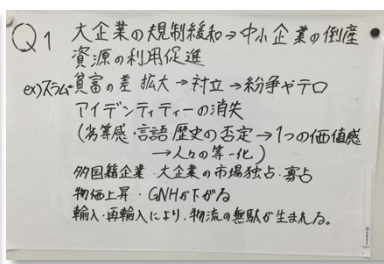 Q1 大企業の規制緩和→中小企業の倒産
資源の利用促進
ex)スラム 貧富の差 拡大→対立→紛争やテロ
アイデンティティーの消失
(劣等感・言語・歴史の否定→1つの価値感
→人々の等一化)
多国籍企業・大企業の市場独占・寡占
物価上昇・GNHが下がる
輸入・再輸入により、物流の無駄が生まれる。